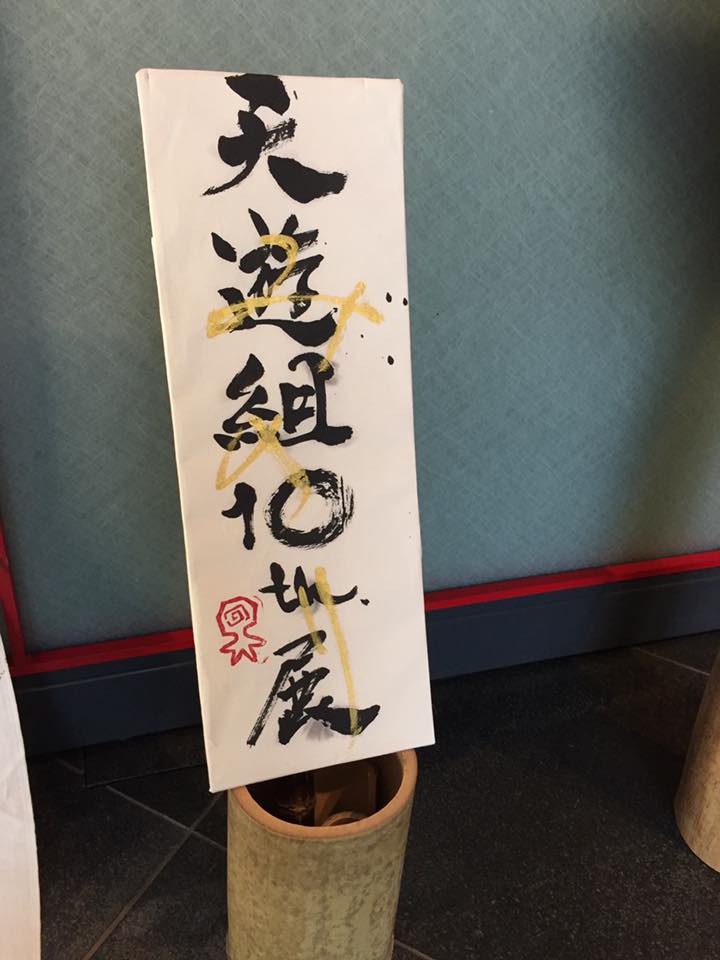 天遊組10th.展